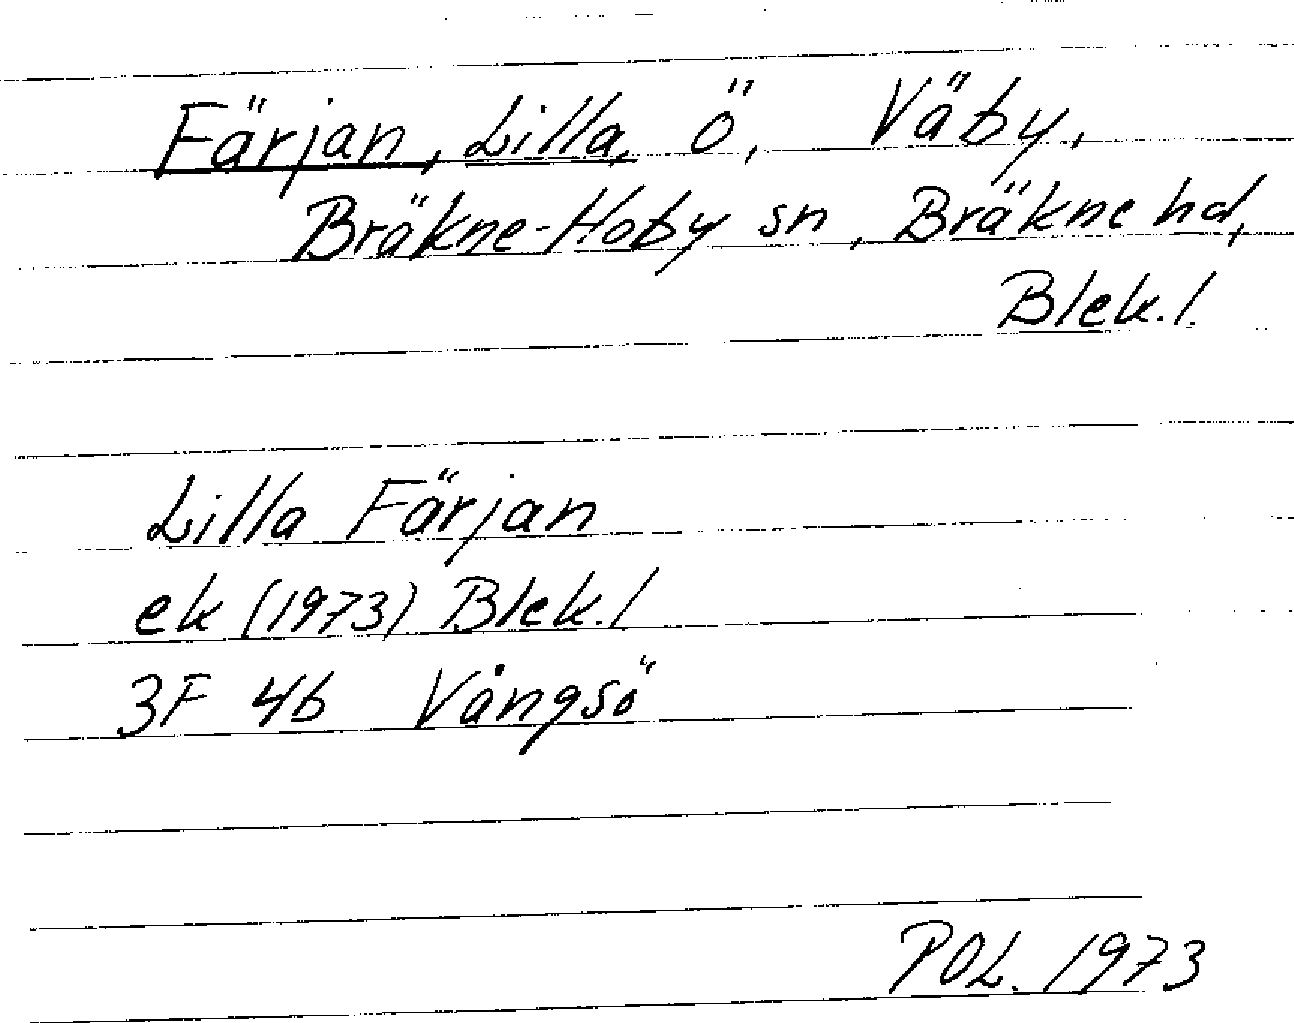 Färjan, Lilla, ö, Väby,
Bräkne-Hoby sn, Bräkne hd,
Blek.l.
Lilla Färjan
ek (1973) Blek.l
3F 4b Vångsö
POL. 1973